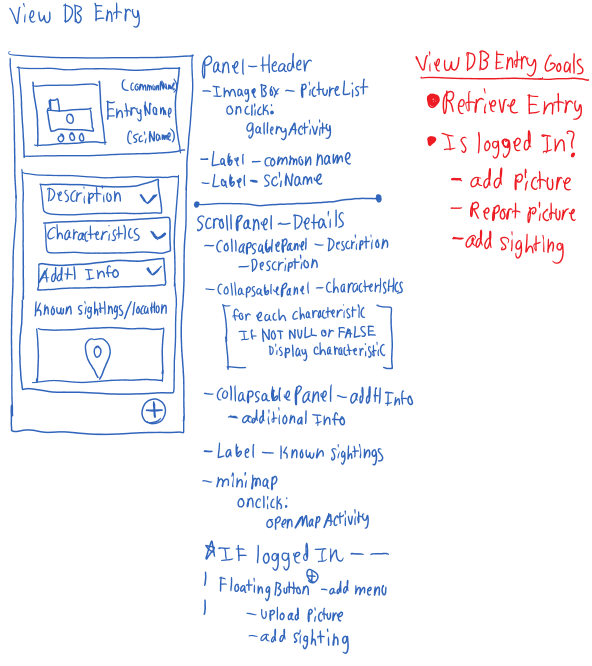 View DB Entry
(commonName)
EntryName
(sciName)
Description
Characteristics
Addtl Info
Known sightings/location
Panel-Header
-ImageBox - PictureList
onclick:
galleryActivity
-Label - common name
-Label - SciName
ScrollPanel-Details
-CollapsablePanel - Description
-Description
-CollapsablePanel - Characteristics
for each characteristic
If NOT NULL or FALSE
Display characteristic
-CollapsablePanel - addtl Info
- additional Info
-Label - Known sightings
-minimap
onclick:
openMapActivity
☆If logged In - -
FloatingButton ⊕ - add menu
- upload picture
- add sighting
View DB Entry Goals
• Retrieve Entry
• Is logged In?
- add picture
- Report picture
- add sighting